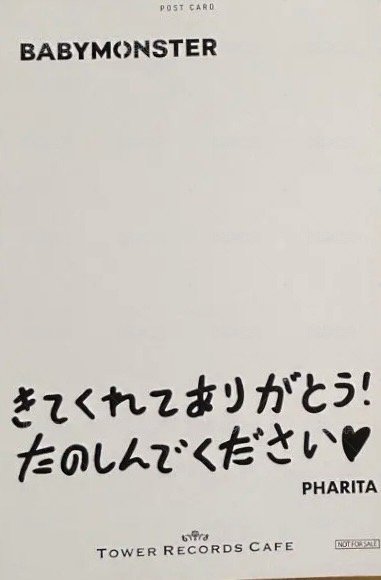 POST CARD
BABYMONSTER
きてくれてありがとう!
たのしんでください♥
PHARITA
TOWER RECORDS CAFE
NOT FOR SALE